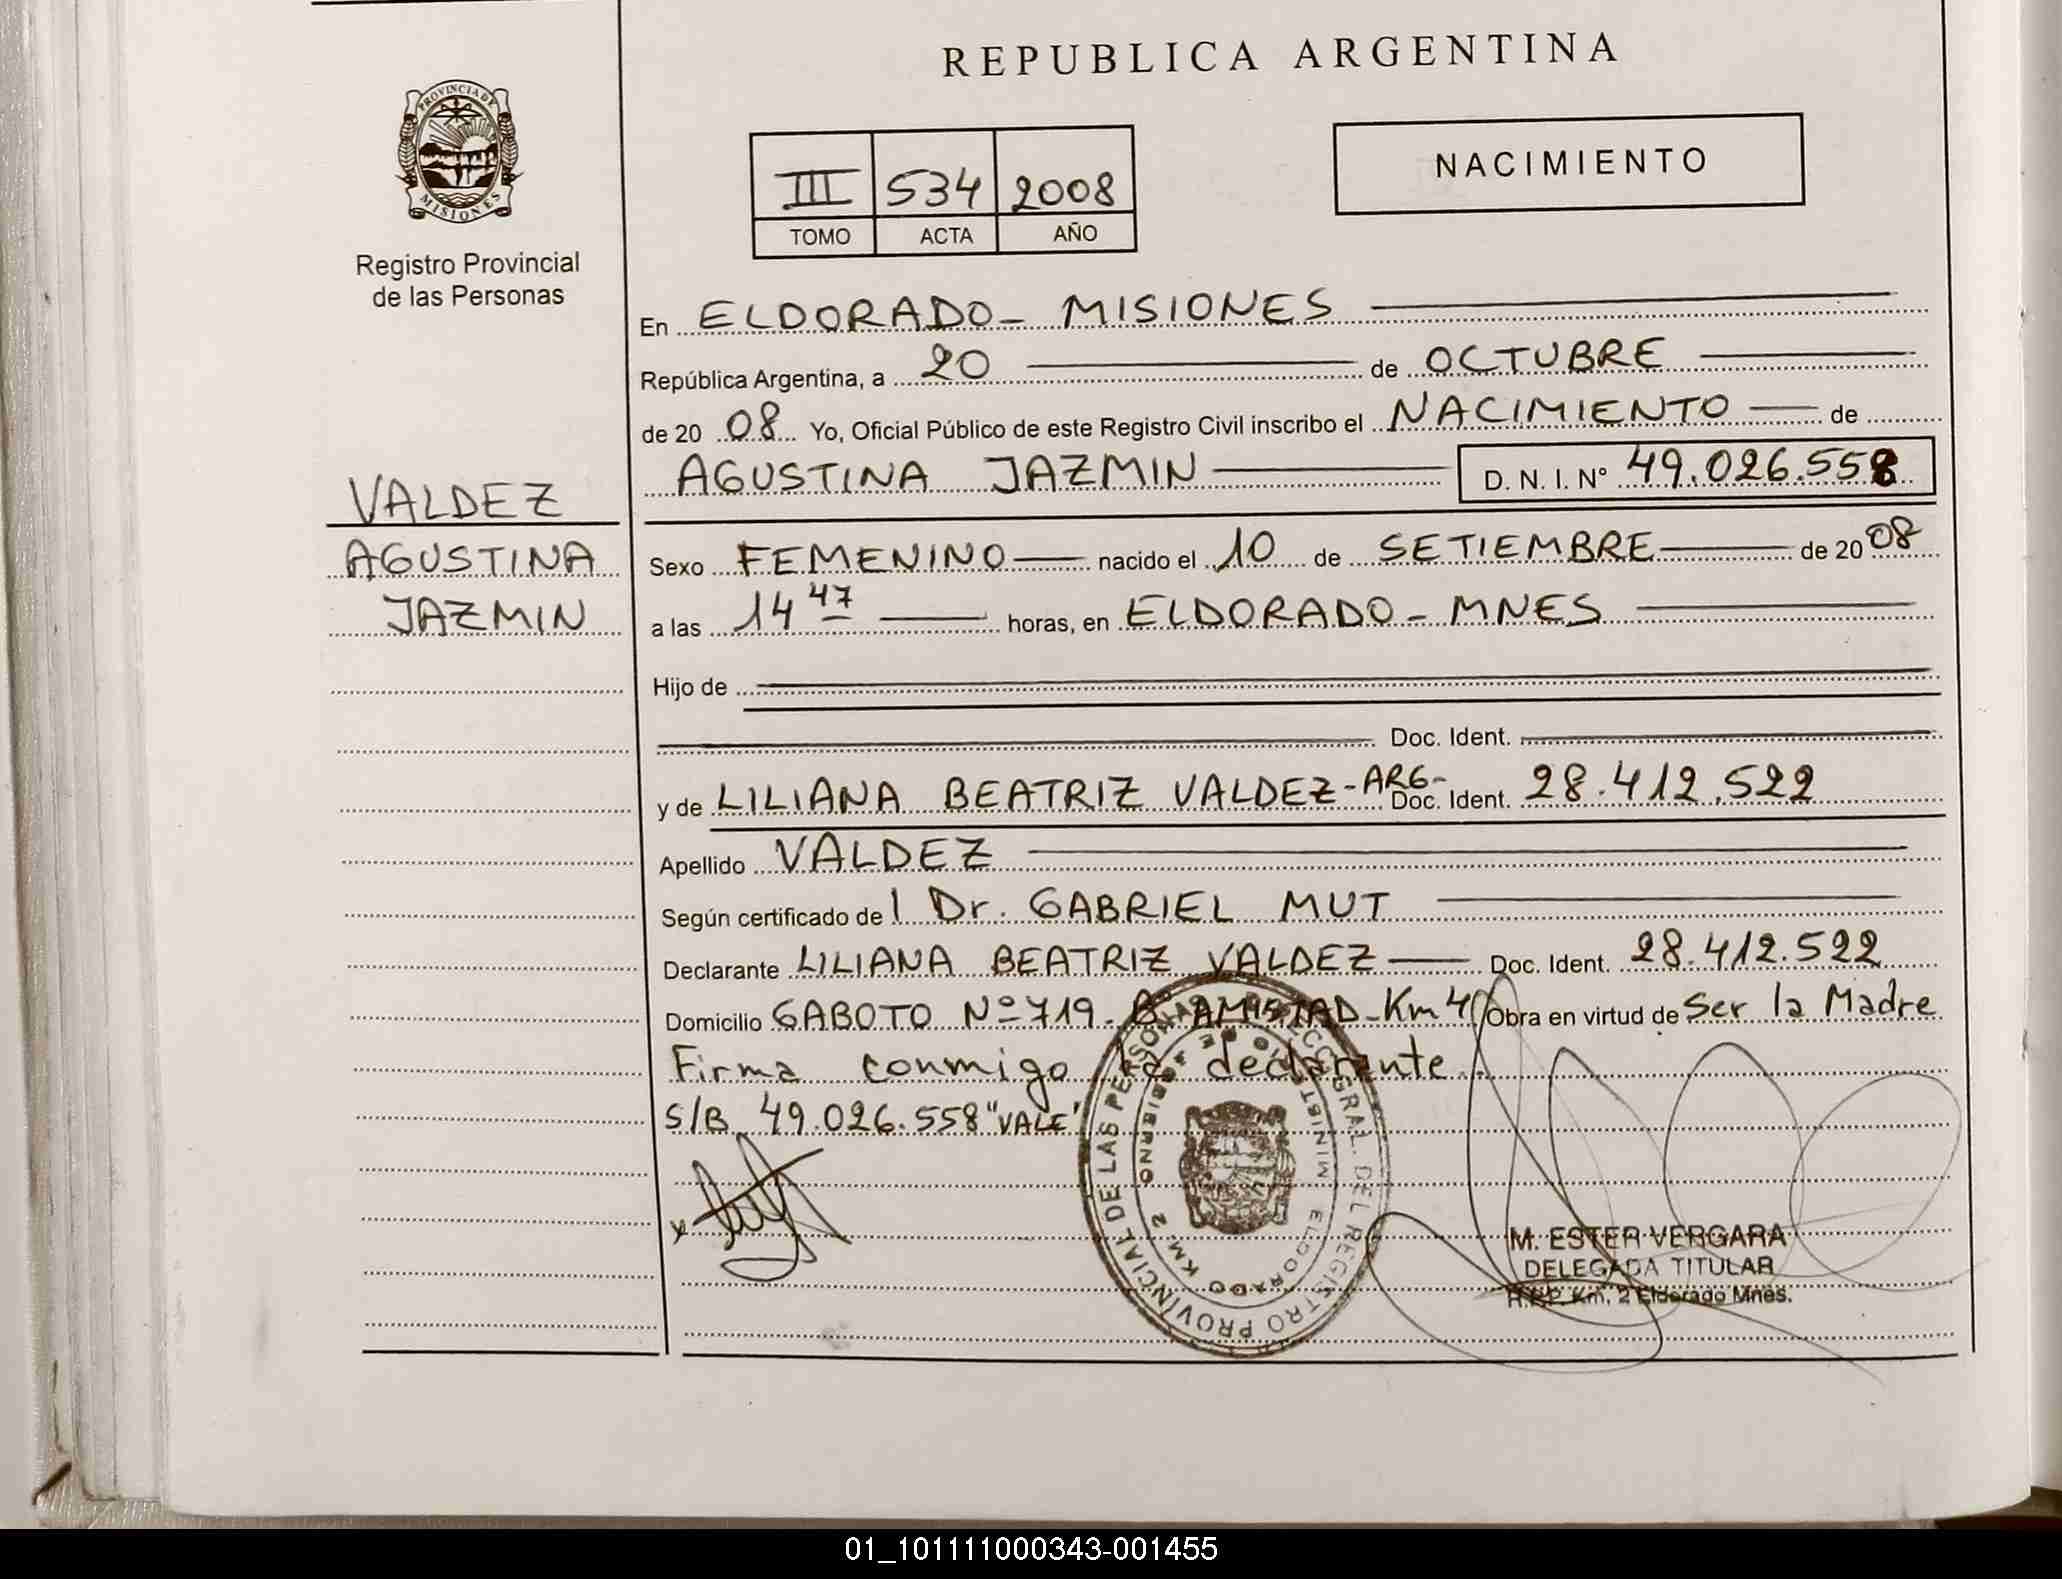 REPUBLICA ARGENTINA
PROVINCIA DE MISIONES
Registro Provincial
de las Personas
III 534 2008
TOMO ACTA AÑO
NACIMIENTO
En ELDORADO - MISIONES
República Argentina, a 20 de OCTUBRE
de 20 08 Yo, Oficial Público de este Registro Civil inscribo el NACIMIENTO de
AGUSTINA JAZMIN D. N. I. N° 49.026.558
VALDEZ
AGUSTINA
JAZMIN
Sexo FEMENINO nacido el 10 de SETIEMBRE de 20 08
a las 14 47 horas, en ELDORADO - MNES
Hijo de
Doc. Ident.
y de LILIANA BEATRIZ VALDEZ - ARG - Doc. Ident. 28.412.522
Apellido VALDEZ
Según certificado de l Dr. GABRIEL MUT
Declarante LILIANA BEATRIZ VALDEZ Doc. Ident. 28.412.522
Domicilio GABOTO Nº 719 - Bº AMISTAD - Km 4 Obra en virtud de Ser la Madre
Firma conmigo la declarante
S/B 49.026.558 "VALE"
DIRECC. GRAL. DEL REGISTRO PROVINCIAL DE LAS PERSONAS
MINIST. ELDORADO KM. 2 GOBIERNO
M. ESTER VERGARA
DELEGADA TITULAR
R.P.P. Km. 2 Eldorado Mnes.
01_101111000343-001455